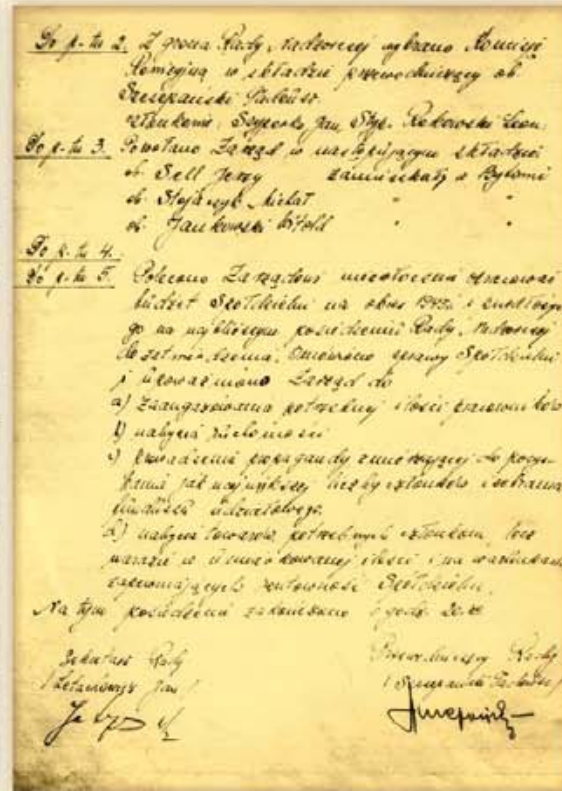 Do p-tu 2. Z grona Rady Nadzorczej wybrano Komisję
Rewizyjną w składzie przewodniczący ob.
Szczepański Tadeusz
członkowie: Jan, Rekowski Leon
Do p-tu 3. Powołano Zarząd w następującym składzie
ob. Sell Jerzy zamieszkały w Bytomiu
ob. Stojarzyk Michał " "
ob. Jankowski Witold " "
Do p-tu 4.
Do p-tu 5. Polecono Zarządowi niezwłocznie opracować
budżet Spółdzielni na okres i
go na najbliższym posiedzeniu Rady Nadzorczej
do zatwierdzenia. Omówiono sprawy Spółdzielni
i upoważniono Zarząd do
a) zaangażowania potrzebnej ilości pracowników
b) nabycia ruchomości
c) prowadzenia propagandy zmierzającej do pozys-
kania jak największej liczby członków i zebrania
funduszu udziałowego.
d) nabycia towarów potrzebnych członkom, lecz
narazie w umiarkowanej ilości i na warunkach
zapewniających rentowność Spółdzielni.
Na tym posiedzenie zakończono o godz. 20.
Sekretarz Rady Przewodniczący Rady
Jan / / Szczepański Tadeusz /